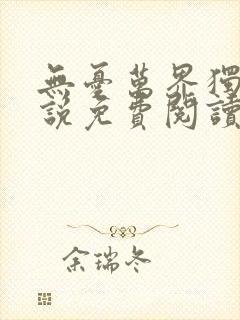 無憂萬界獨
說免費閱讀
余瑞冬